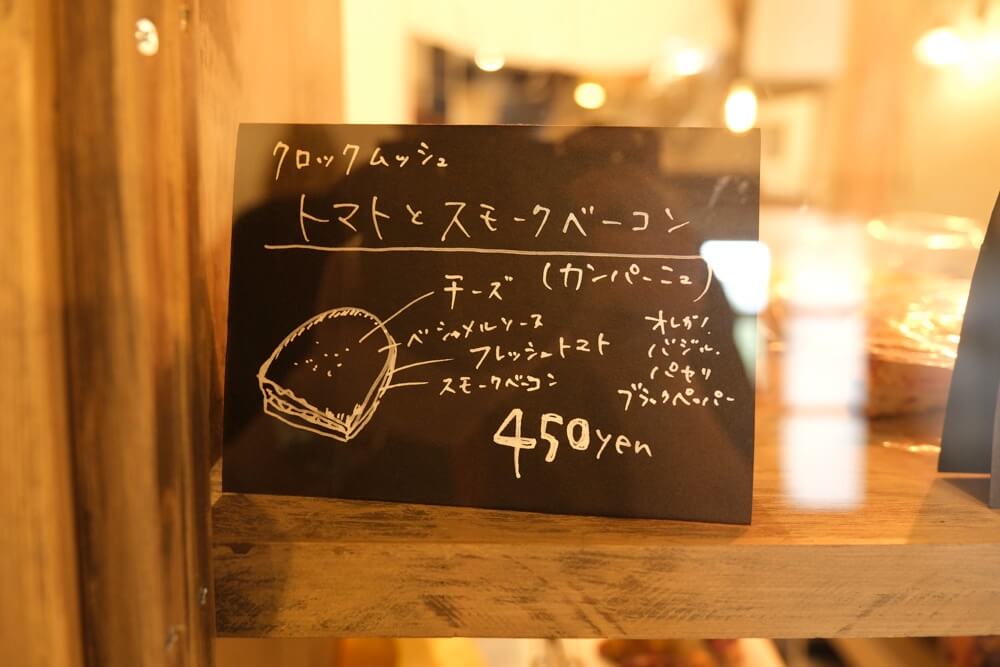 クロックムッシュ
トマトとスモークベーコン
(カンパーニュ)
チーズ
ベシャメルソース
フレッシュトマト
スモークベーコン
オレガノ.
バジル.
パセリ
ブラックペッパー
450yen